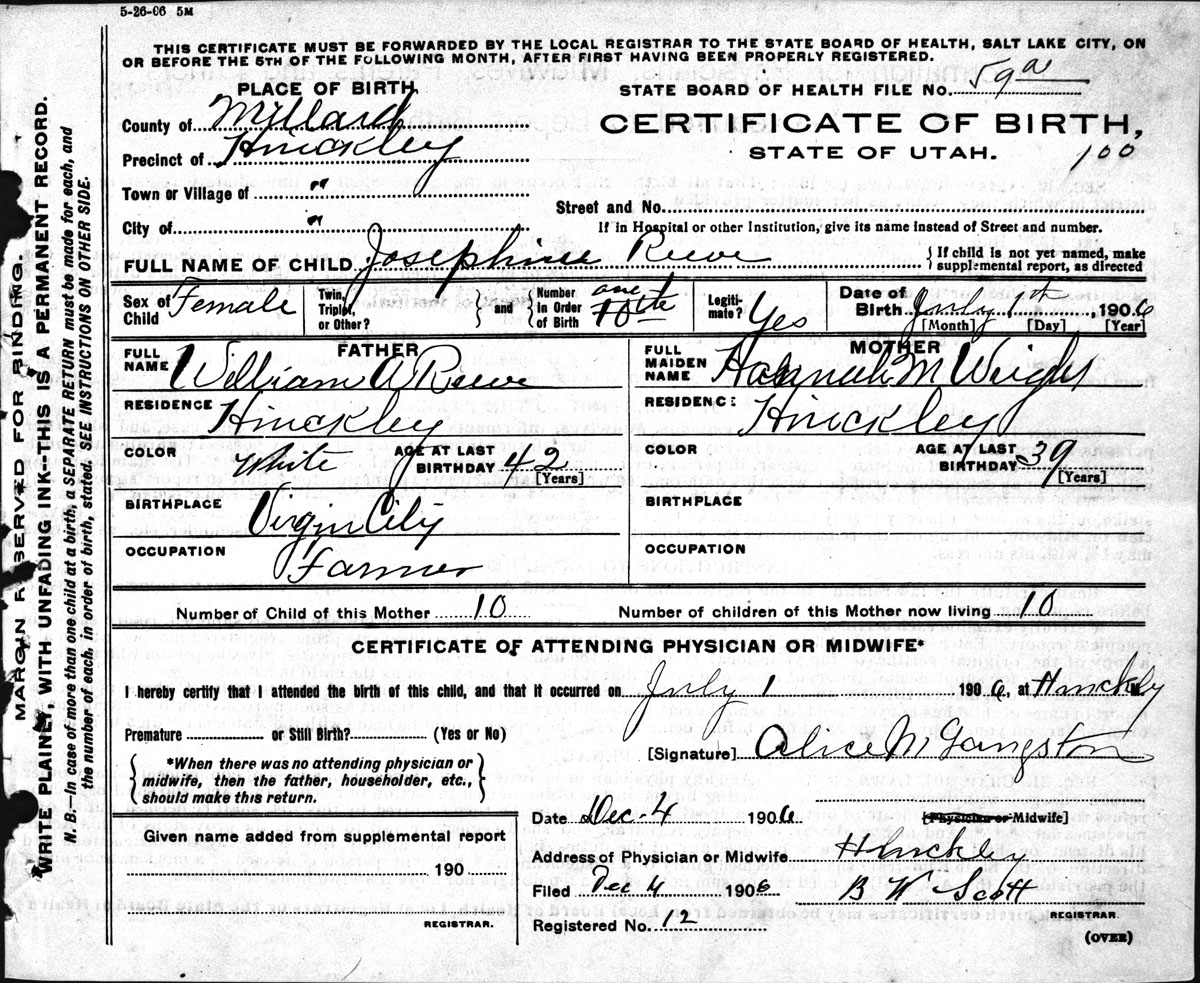 5-26-06 5M
THIS CERTIFICATE MUST BE FORWARDED BY THE LOCAL REGISTRAR TO THE STATE BOARD OF HEALTH, SALT LAKE CITY, ON
OR BEFORE THE 5TH OF THE FOLLOWING MONTH, AFTER FIRST HAVING BEEN PROPERLY REGISTERED.
PLACE OF BIRTH
STATE BOARD OF HEALTH FILE No. 59
County of Millard
CERTIFICATE OF BIRTH,
Precinct of Hinckley
STATE OF UTAH. 100
Town or Village of "
Street and No.
City of "
If in Hospital or other Institution, give its name instead of Street and number.
FULL NAME OF CHILD Josephine Reeve { If child is not yet named, make supplemental report, as directed
Sex of Child Female
Twin, Triplet, or Other? } and { Number In Order of Birth one 10th
Legiti-mate? Yes
Date of Birth July 1th, 1906
[Month] [Day] [Year]
FATHER
FULL NAME William A Reeve
RESIDENCE Hinckley
COLOR White AGE AT LAST BIRTHDAY 42 [Years]
BIRTHPLACE Virgin City
OCCUPATION Farmer
MOTHER
FULL MAIDEN NAME Hannah M Wright
RESIDENCE: Hinckley
COLOR AGE AT LAST BIRTHDAY 39 [Years]
BIRTHPLACE
OCCUPATION
Number of Child of this Mother 10 Number of children of this Mother now living 10
CERTIFICATE OF ATTENDING PHYSICIAN OR MIDWIFE*
I hereby certify that I attended the birth of this child, and that it occurred on July 1 1906, at Hinckley M.
Premature or Still Birth? (Yes or No)
[Signature] Alice M Langston
{ *When there was no attending physician or midwife, then the father, householder, etc., should make this return. }
Date Dec-4 1906 [Physician or Midwife]
Given name added from supplemental report
190
REGISTRAR.
Address of Physician or Midwife Hinckley
Filed Dec 4 1906 B W Scott
REGISTRAR.
Registered No. 12
(OVER)
MARGIN RESERVED FOR BINDING.
WRITE PLAINLY, WITH UNFADING INK--THIS IS A PERMANENT RECORD.
N. B.—In case of more than one child at a birth, a SEPARATE RETURN must be made for each, and
the number of each, in order of birth, stated. SEE INSTRUCTIONS ON OTHER SIDE.